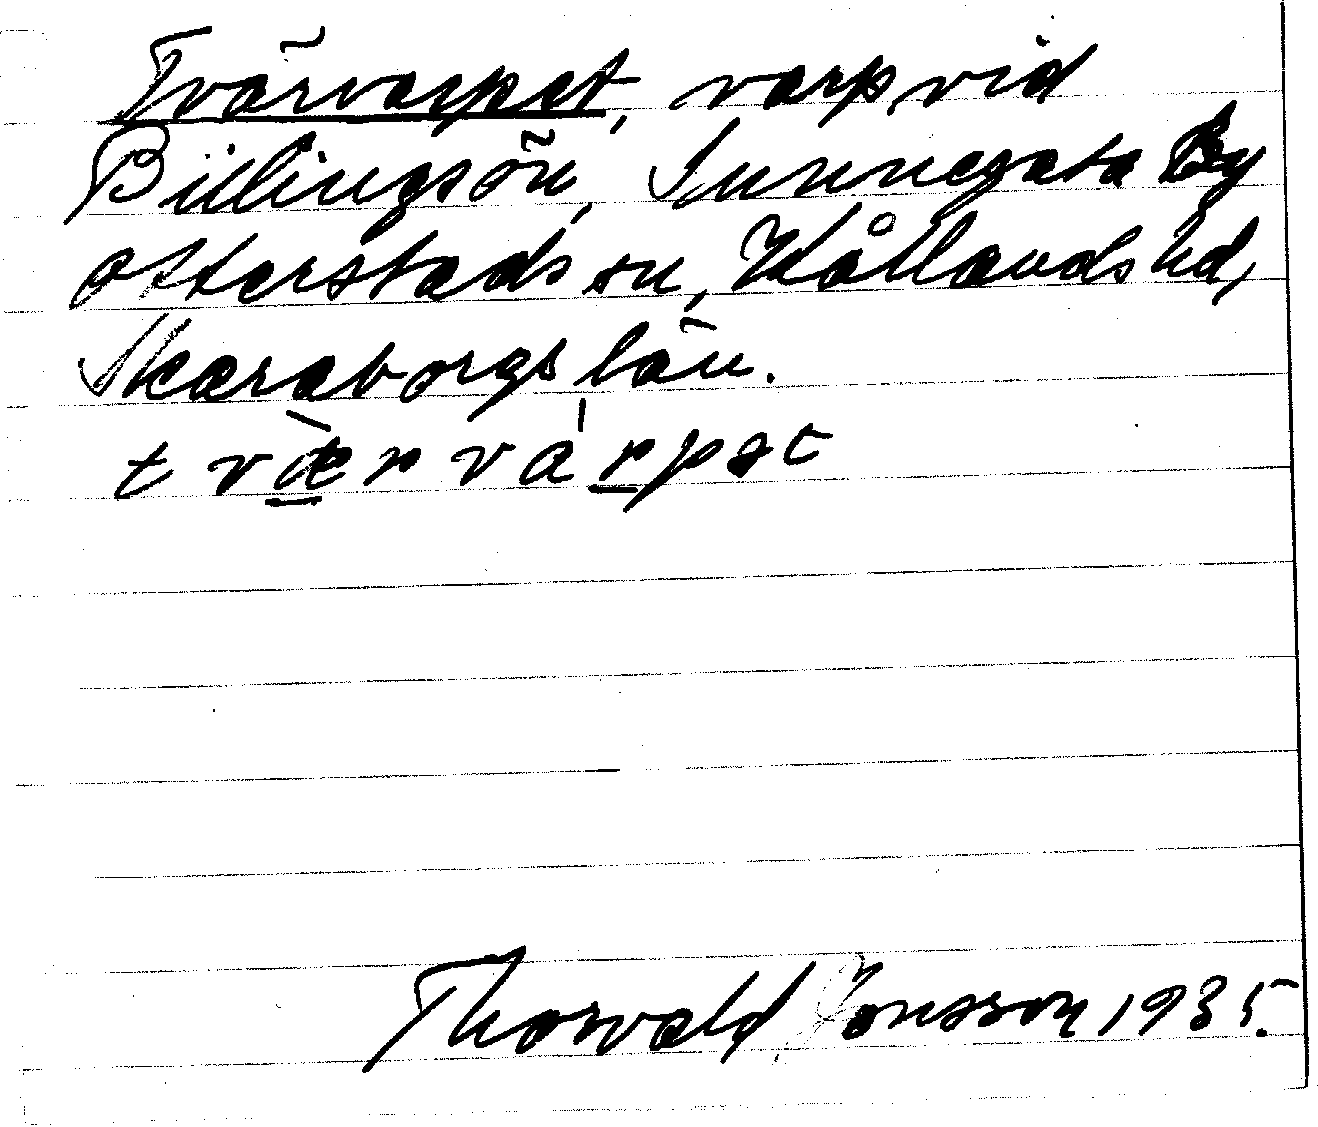 Tvärvarpet, varp vid
Billingsön, Sunnegata By
Otterstads sn, Kållands hd,
Skaraborgs län.
t v æ r v a r p ə t
Thorvald Jonsson, 1935.